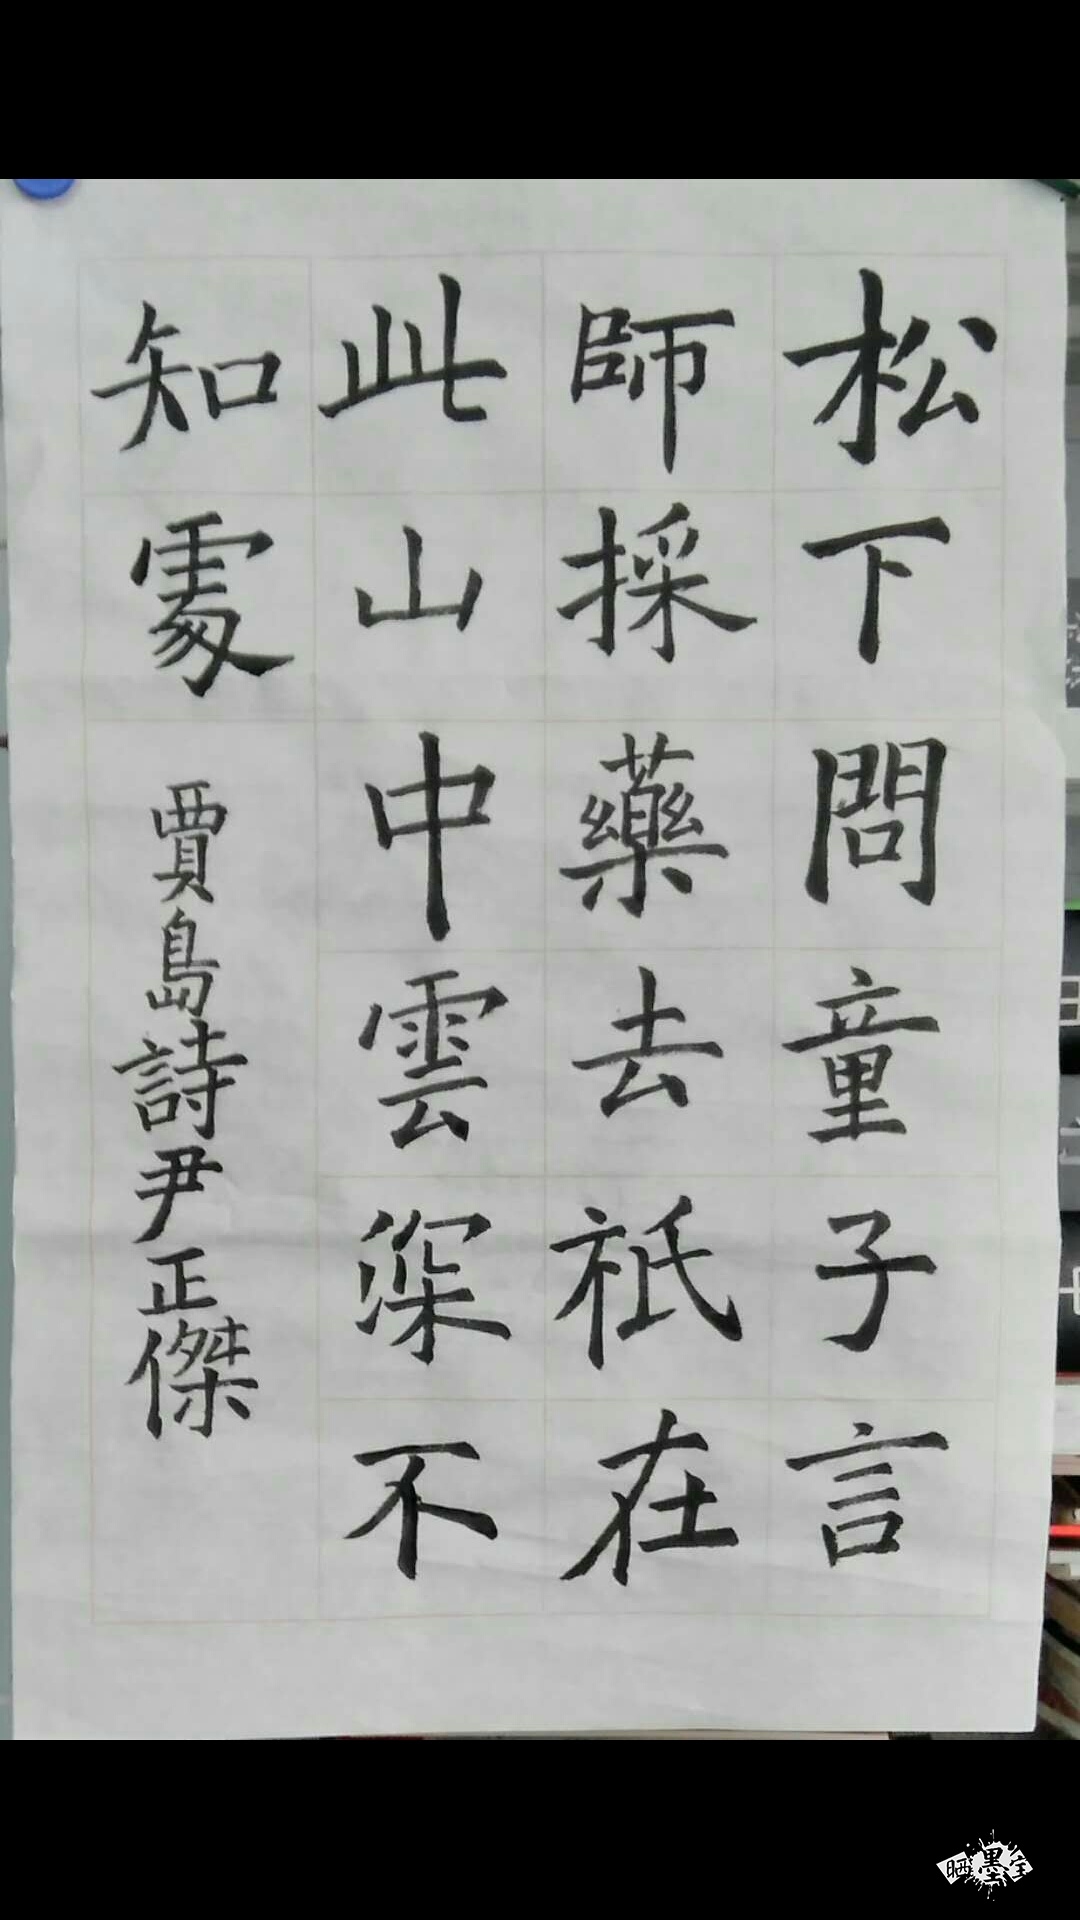 松下問童子言
師採藥去祇在
此山中雲深不
知處
賈島詩尹正傑
晒墨宝